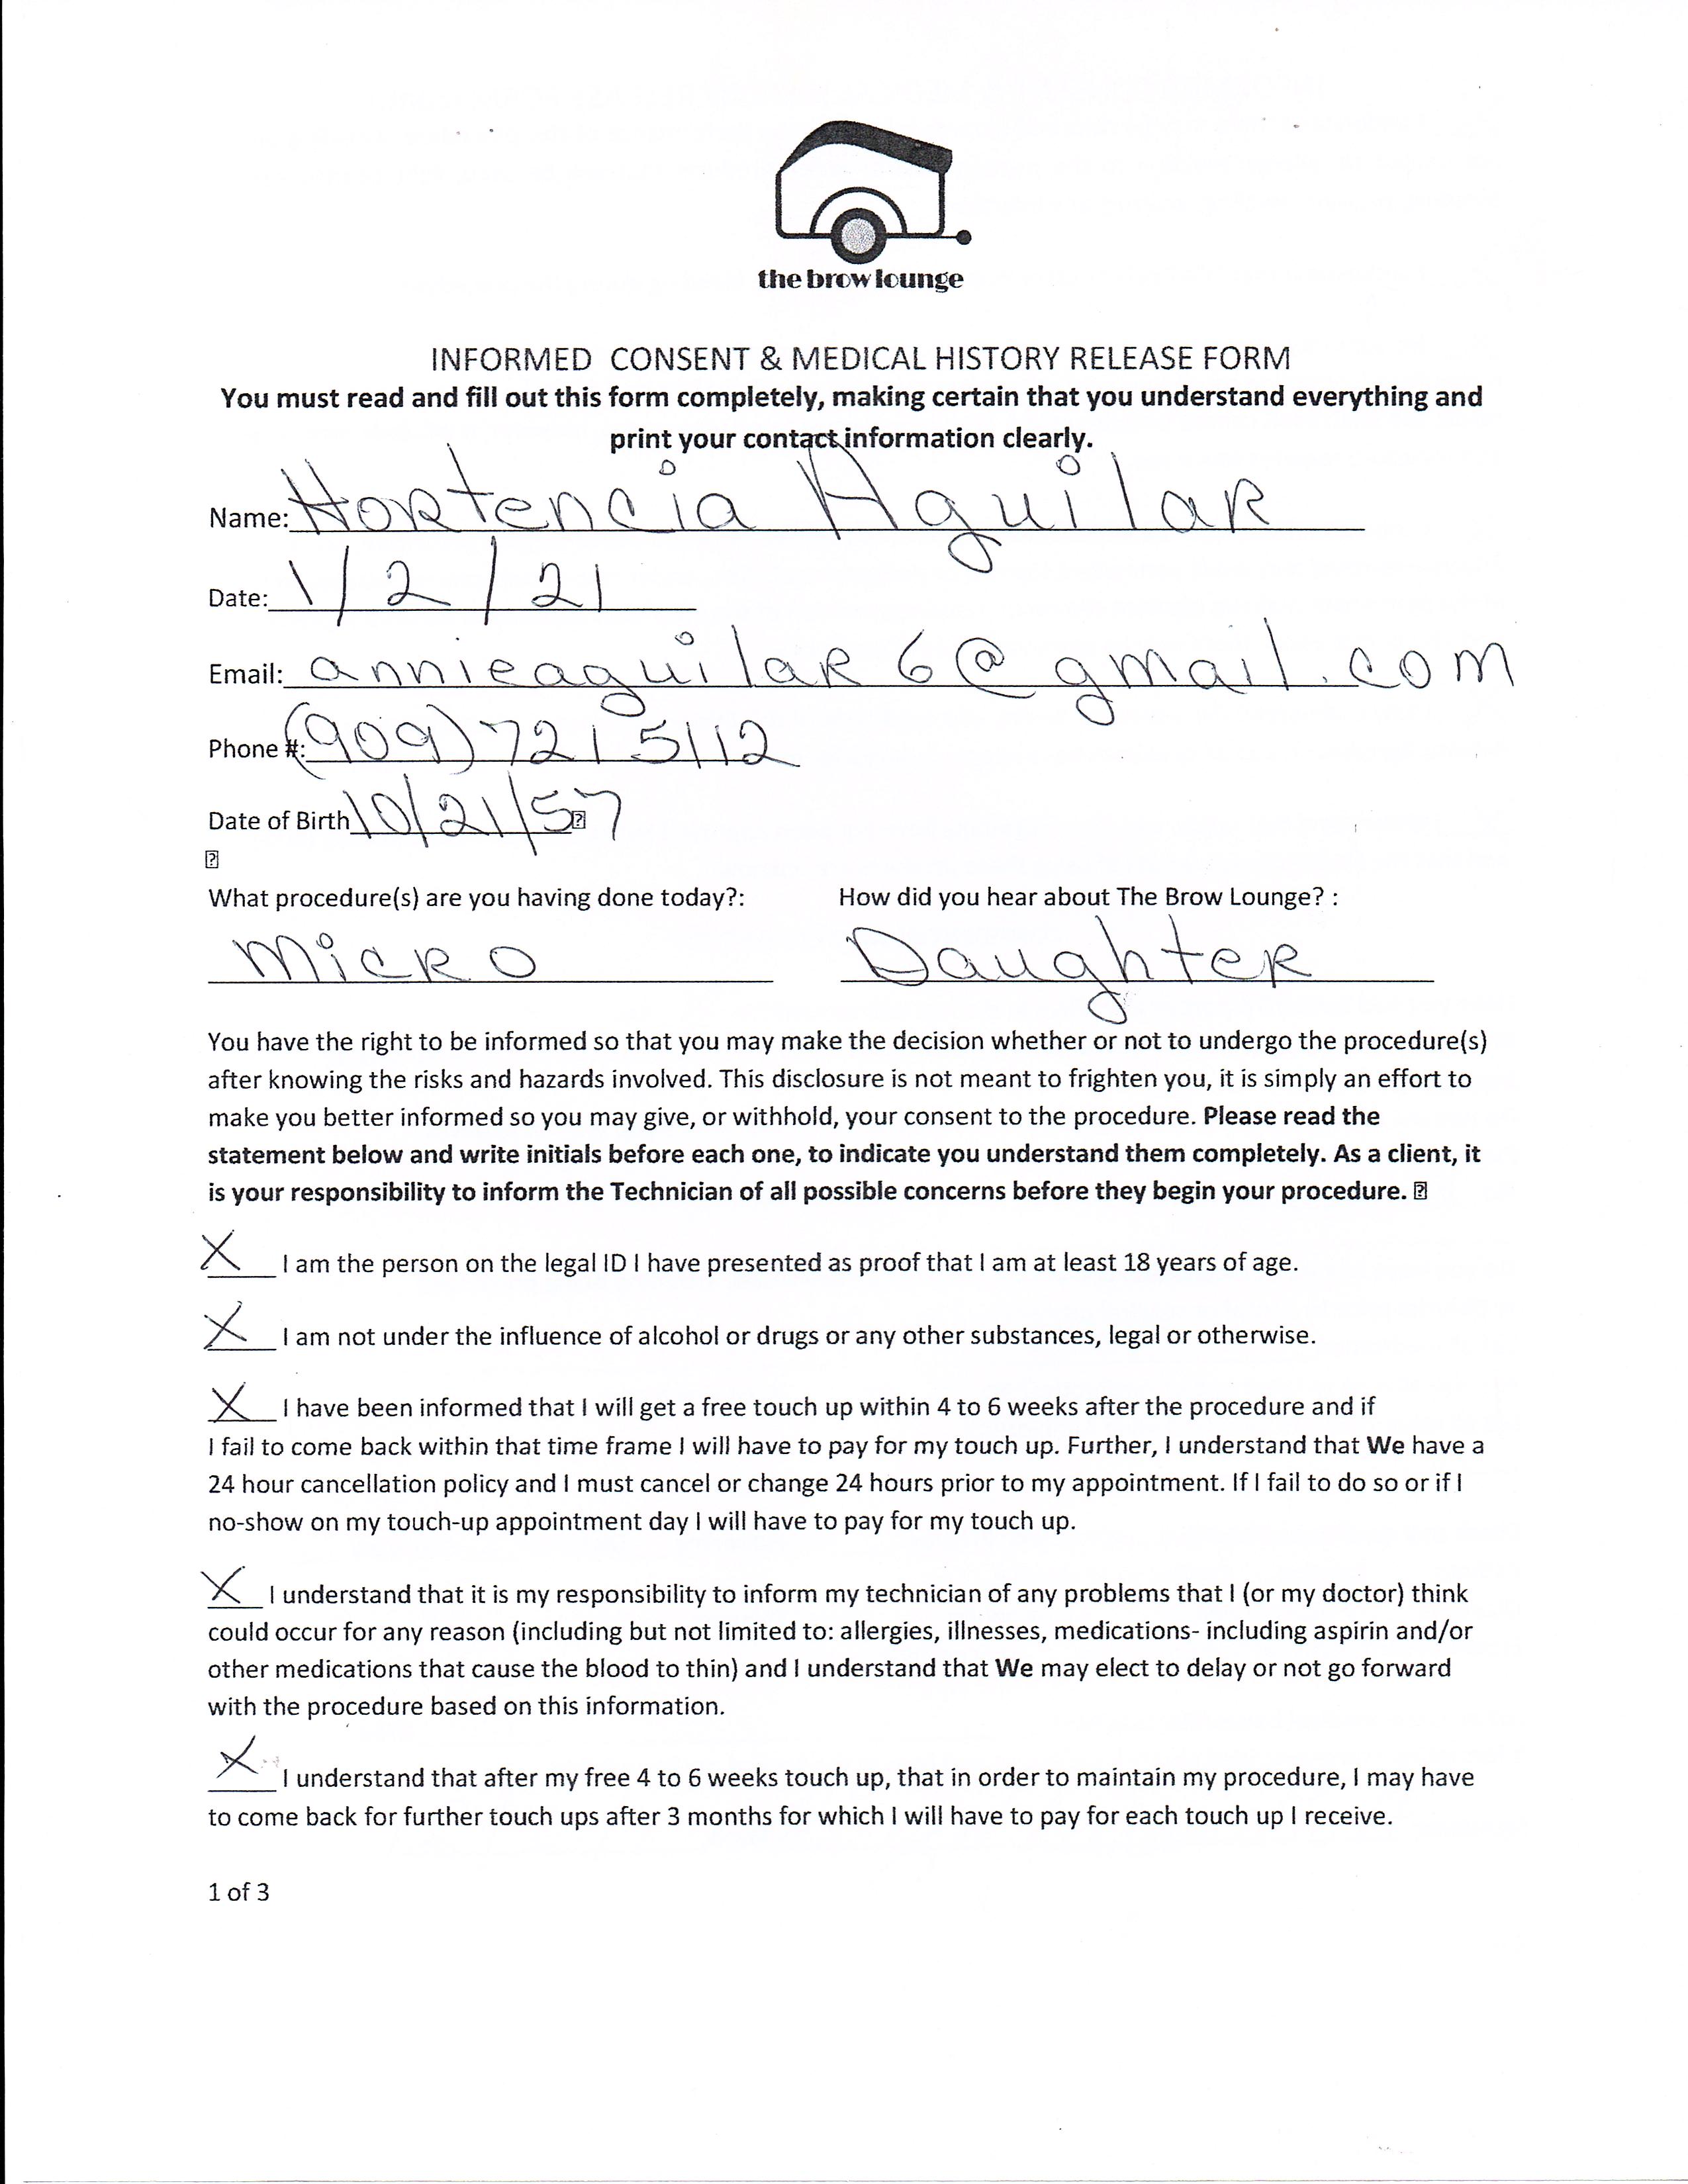 the brow lounge
INFORMED CONSENT & MEDICAL HISTORY RELEASE FORM
You must read and fill out this form completely, making certain that you understand everything and
print your contact information clearly.
Name: Hortencia Aguilar
Date: 1/2/21
Email: annieaguilar6@gmail.com
Phone #: (909) 721 5112
Date of Birth 10/21/57
What procedure(s) are you having done today?: How did you hear about The Brow Lounge? :
Micro Daughter
You have the right to be informed so that you may make the decision whether or not to undergo the procedure(s)
after knowing the risks and hazards involved. This disclosure is not meant to frighten you, it is simply an effort to
make you better informed so you may give, or withhold, your consent to the procedure. Please read the
statement below and write initials before each one, to indicate you understand them completely. As a client, it
is your responsibility to inform the Technician of all possible concerns before they begin your procedure.
X I am the person on the legal ID I have presented as proof that I am at least 18 years of age.
X I am not under the influence of alcohol or drugs or any other substances, legal or otherwise.
X I have been informed that I will get a free touch up within 4 to 6 weeks after the procedure and if
I fail to come back within that time frame I will have to pay for my touch up. Further, I understand that We have a
24 hour cancellation policy and I must cancel or change 24 hours prior to my appointment. If I fail to do so or if I
no-show on my touch-up appointment day I will have to pay for my touch up.
X I understand that it is my responsibility to inform my technician of any problems that I (or my doctor) think
could occur for any reason (including but not limited to: allergies, illnesses, medications- including aspirin and/or
other medications that cause the blood to thin) and I understand that We may elect to delay or not go forward
with the procedure based on this information.
X I understand that after my free 4 to 6 weeks touch up, that in order to maintain my procedure, I may have
to come back for further touch ups after 3 months for which I will have to pay for each touch up I receive.
1 of 3